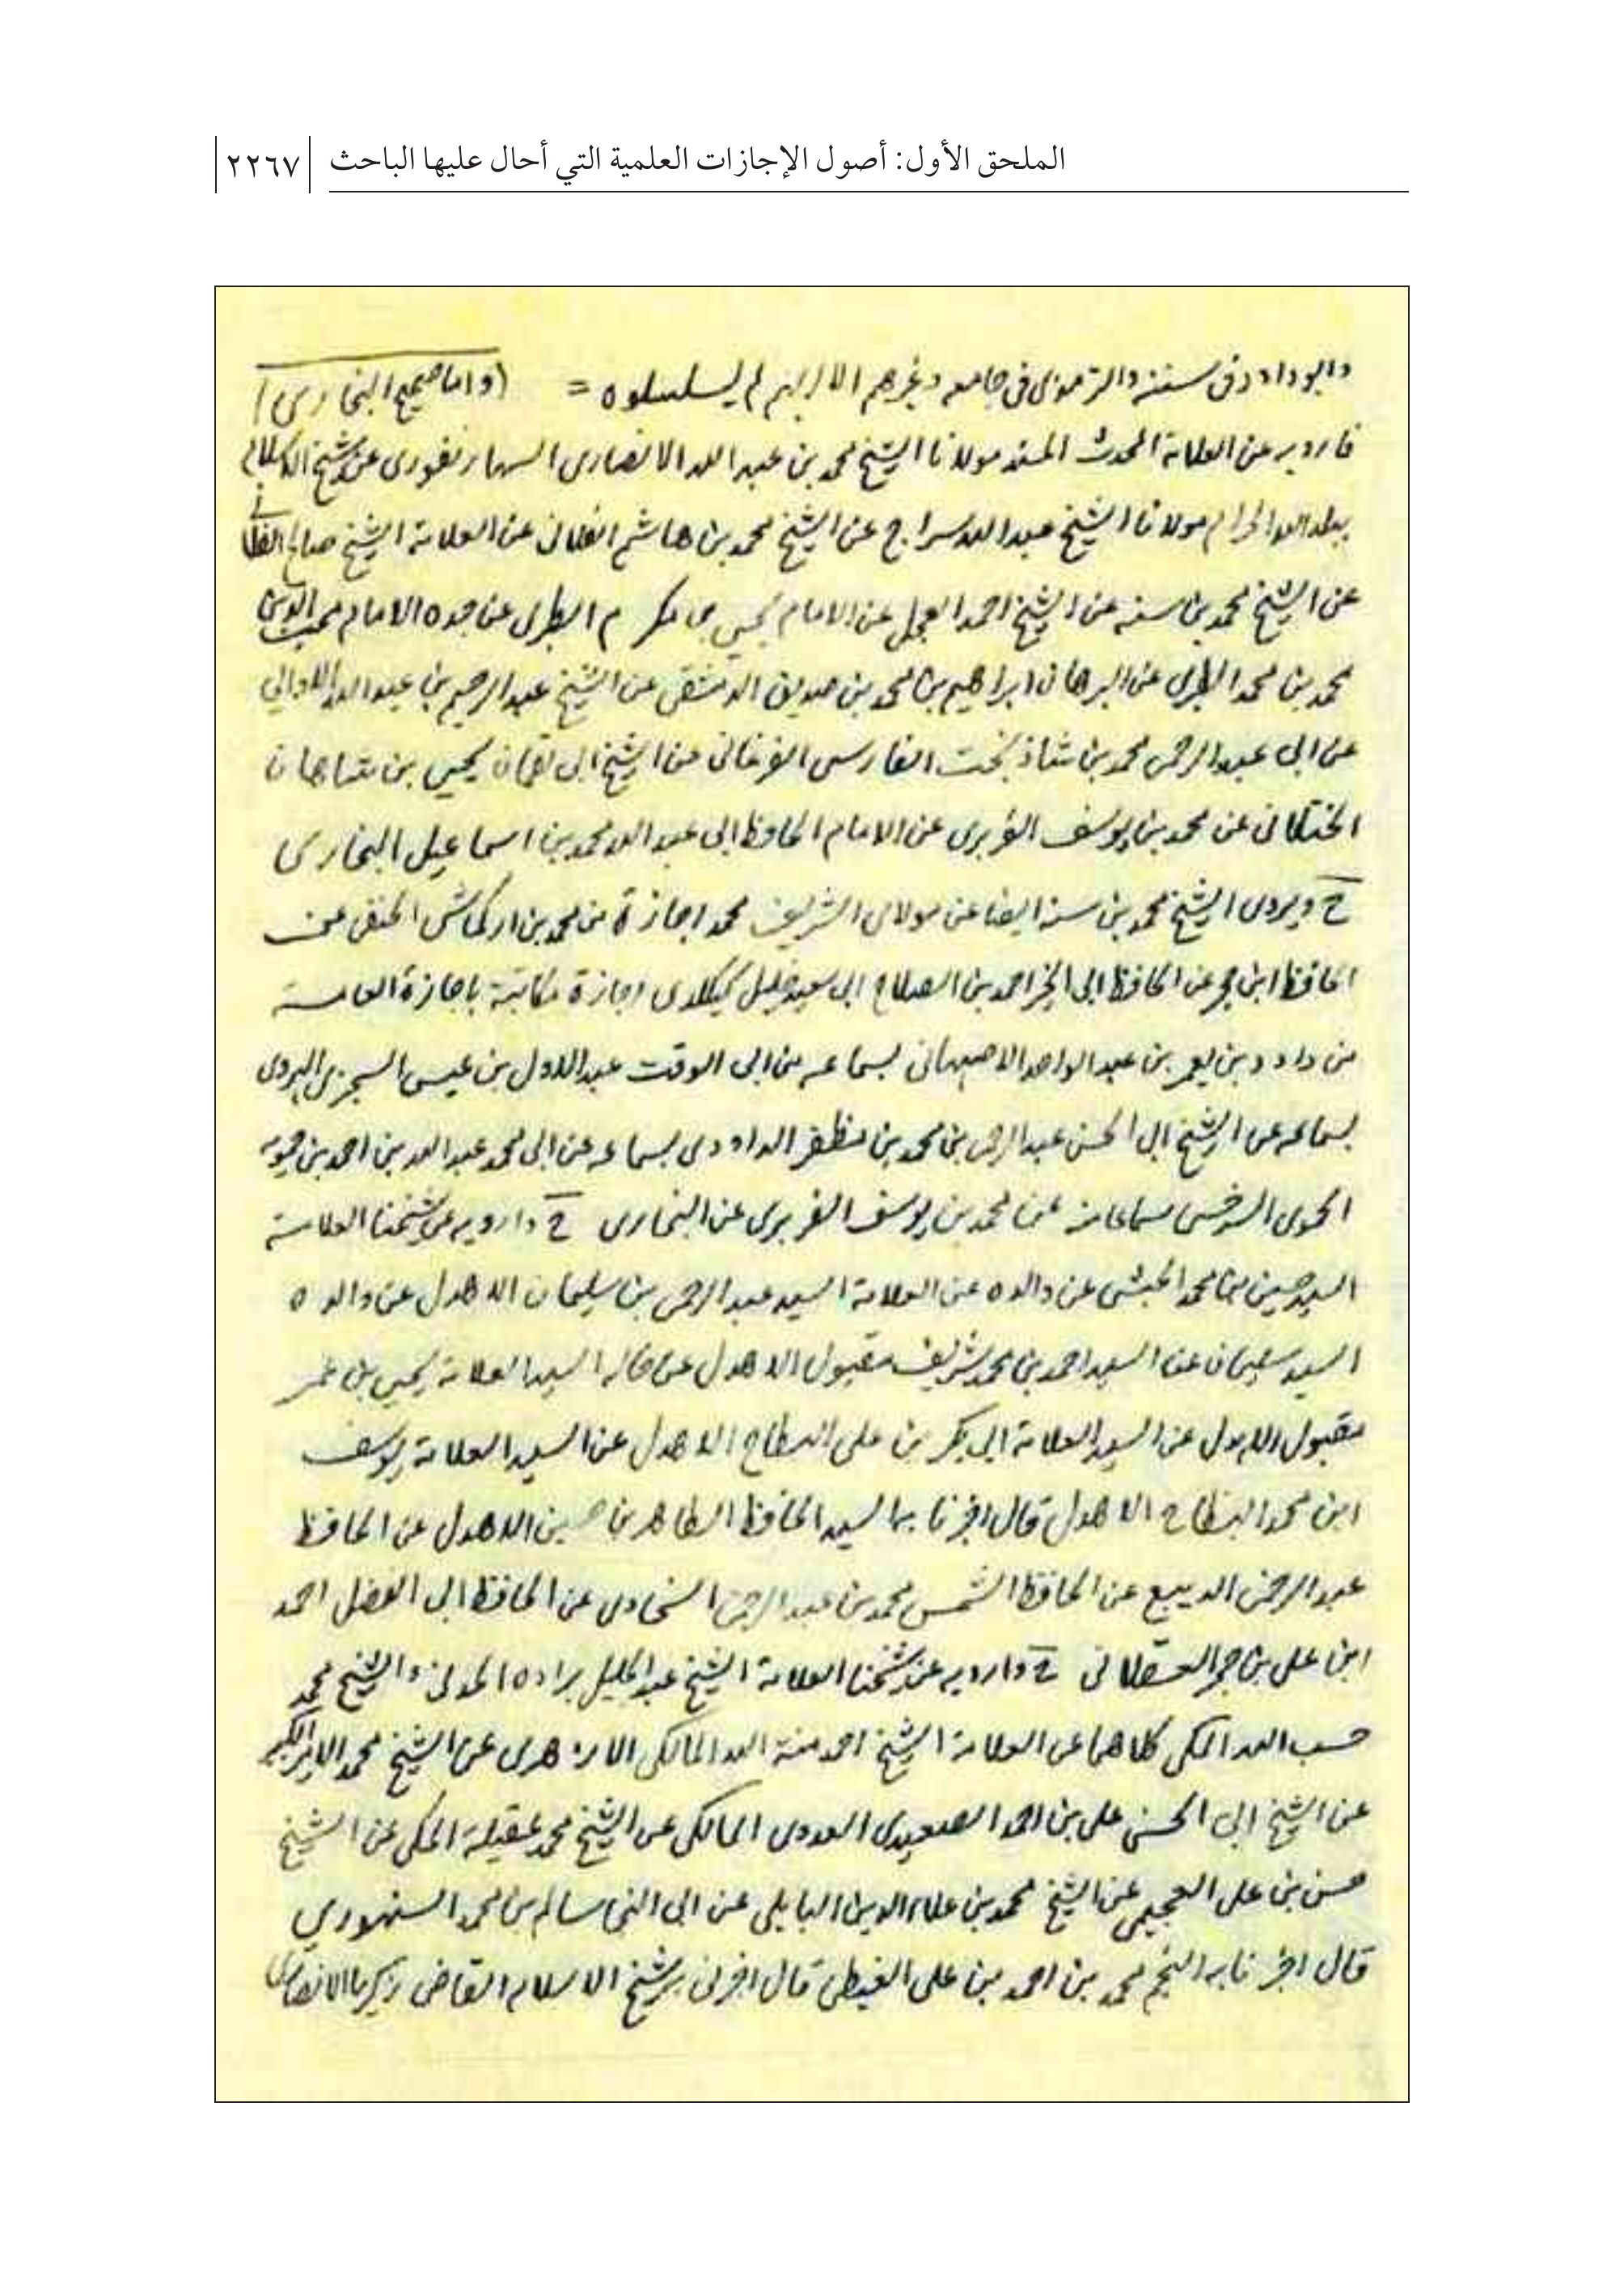 الملحق الأول: أصول الإجازات العلمية التي أحال عليها الباحث
٢٢٦٧
وابو داود في سننه والترمذي في جامعه وغيرهم الا انهم لم يسلسلوه = (واما صحيح البخاري)
فارويه عن العلامة المحدث المسند مولانا الشيخ محمد بن عبد الله الانصاري السهارنفوري عن شيخ
ببلد الله الحرام مولانا الشيخ عبد الله سراج عن الشيخ محمد بن هاشم الفلاني عن العلامة الشيخ صالح الفلاني
عن الشيخ محمد بن سنه عن الشيخ احمد العجل عن الامام يحيى بن مكرم الطبري عن جده الامام محب الدين
محمد بن محمد الطبري عن البرهان ابراهيم بن محمد بن صديق الدمشقي عن الشيخ عبد الرحيم بن عبد الله الاوالي
عن ابي عبد الرحمن محمد بن شاذ بخت الفارسي الفرغاني عن الشيخ ابي لقمان يحيى بن شاهان
الختلاني عن محمد بن يوسف الفربري عن الامام الحافظ ابي عبد الله محمد بن اسماعيل البخاري
ح ويروي الشيخ محمد بن سنة ايضا عن مولاي الشريف محمد اجازة من محمد بن اركماش الحنفي عن
الحافظ ابن حجر عن الحافظ ابي الخير احمد بن الصلاح ابي سعيد خليل كيكلدي اجازة مكاتبة باجازة العامة
من داود بن يعمر بن عبد الواحد الاصبهاني بسماعه من ابي الوقت عبد الاول بن عيسى السجزي الهروي
بسماعه عن الشيخ ابي الحسن عبد الرحمن بن محمد بن مظفر الداودي بسماعه عن ابي محمد عبد الله بن احمد بن حمويه
الحموي السرخسي سماعا من محمد بن يوسف الفربري عن البخاري ح وارويه عن شيخنا العلامة
السيد حسين بن محمد الحبشي عن والده عن العلامة السيد عبد الرحمن بن سليمان الاهدل عن والده
السيد سليمان عن السيد احمد بن محمد شريف مقبول الاهدل عن خاله السيد العلامة يحيى بن عمر
مقبول الاهدل عن السيد العلامة ابي بكر بن علي البطاح الاهدل عن السيد العلامة يوسف
ابن محمد البطاح الاهدل قال اخبرنا بها السيد الحافظ الطاهر بن حسين الاهدل عن الحافظ
عبد الرحمن الديبع عن الحافظ الشمس محمد بن عبد الرحمن السخاوي عن الحافظ ابي الفضل احمد
ابن علي بن حجر العسقلاني ح وارويه عن شيخنا العلامة الشيخ عبد الجليل براده المدني والشيخ محمد
حسب الله المكي كلاهما عن العلامة الشيخ احمد منة الله المالكي الازهري عن الشيخ محمد الامير الكبير
عن الشيخ ابي الحسن علي بن احمد الصعيدي العدوي المالكي عن الشيخ محمد عقيلة المكي عن الشيخ
حسن بن علي العجيمي عن الشيخ محمد بن علاء الدين البابلي عن ابي النجا سالم بن محمد السنهوري
قال اخبرنا به النجم محمد بن احمد بن علي الغيطي قال اخبرني به شيخ الاسلام القاضي زكريا الانصاري